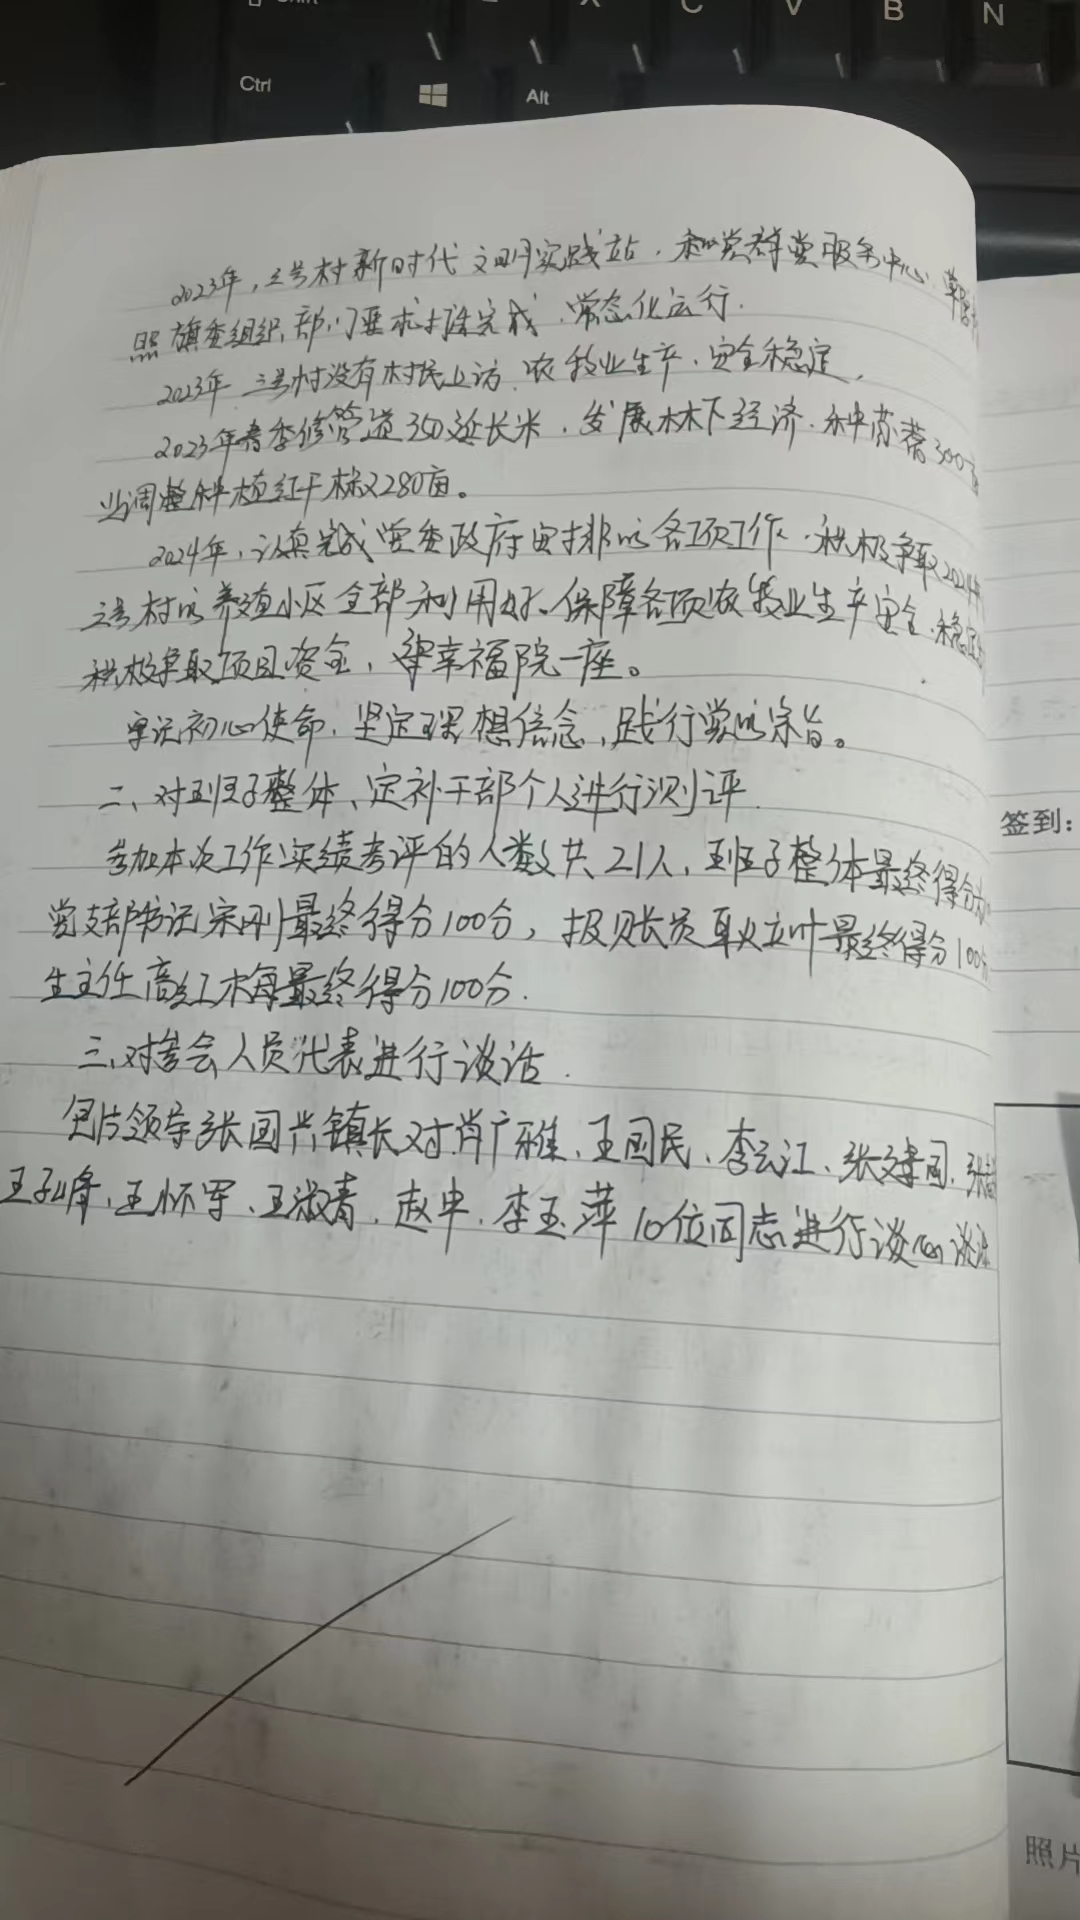 Ctrl
Alt
X
C
V
B
N
2023年,三号村新时代文明实践站、和党群服务中心
照旗委组织部门要求打造完成,常态化运行.
2023年三号村没有村民上访,农牧业生产、安全稳定,
2023年春季修管道350延长米,发展林下经济,种苜蓿300
当调整种植红干椒2280亩。
2024年,认真完成党委政府安排的各项工作,积极争取2024年
三号村的养殖小区全部利用好。保障各项农牧业生产安全、稳定
积极争取项目资金,建幸福院一座。
牢记初心使命,坚定理想信念,践行党的宗旨。
二、对班子整体、定补干部个人进行测评.
参加本次工作实绩考评的人数共21人,班子整体最终得分
党支部书记宋刚最终得分100分,报账员耿立叶最终得分100分
生主任高红梅最终得分100分.
三、对参会人员代表进行谈话.
包片领导张国兴镇长对肖广雅、王国民、李云江、张建国、张
王孔峰、王怀军、王淑青、赵申、李玉萍10位同志进行谈心谈话
签到:
照片